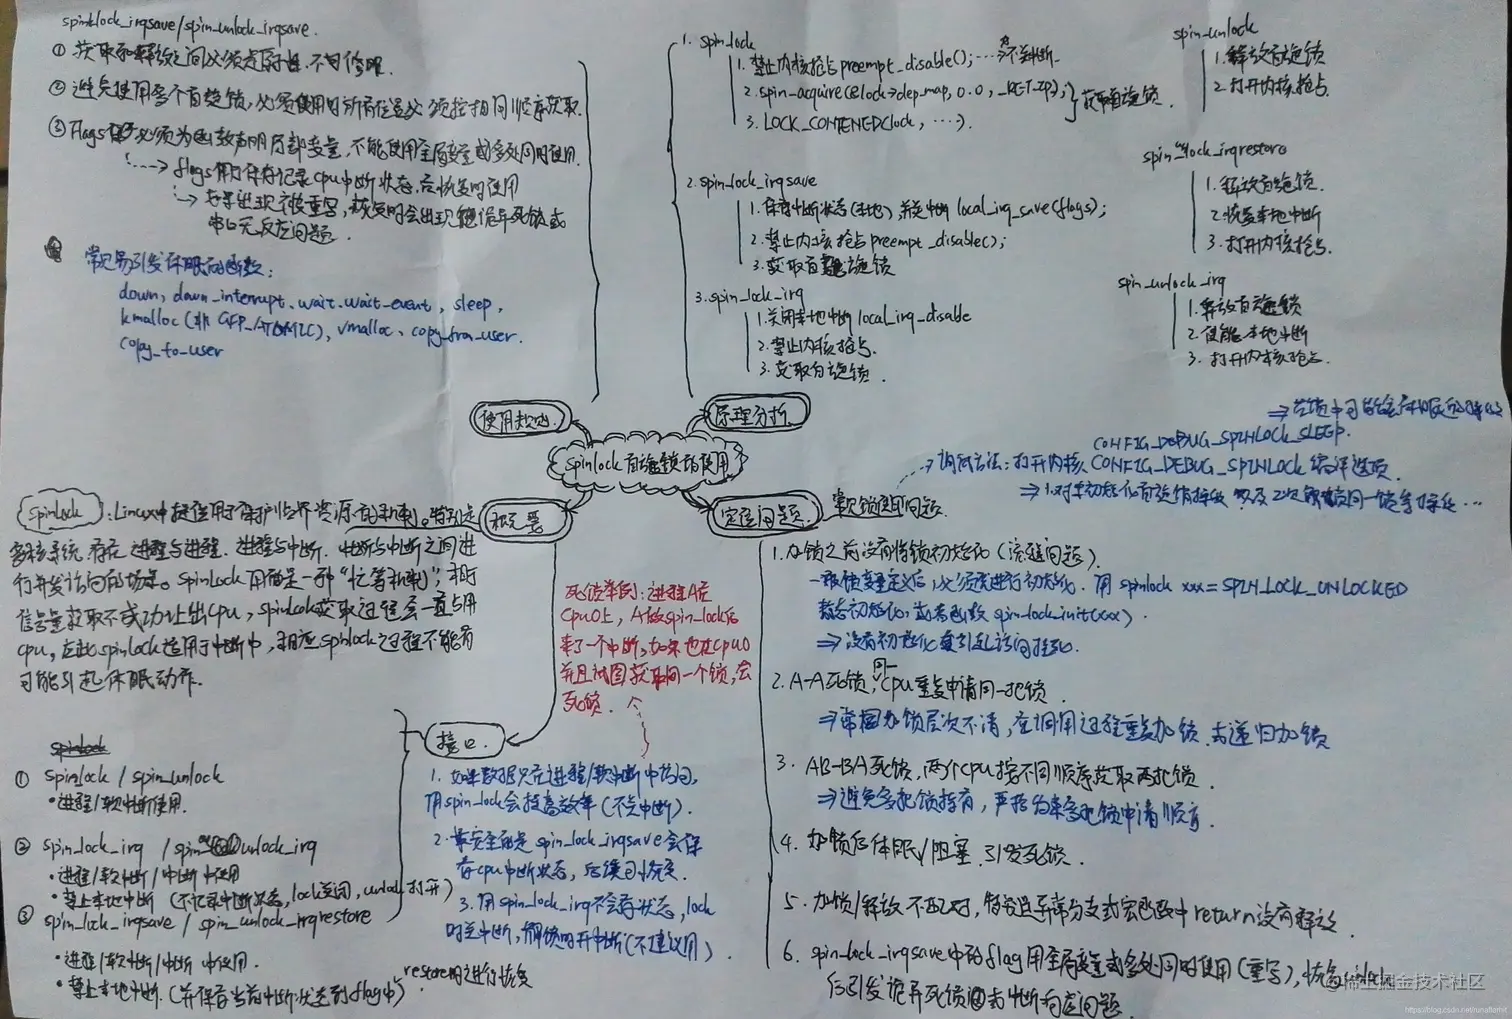 spinklock_irqsave/spin_unlock_irqsave.
① 获取和释放之间必须是原子性,不可修眠.
② 避免使用多个自旋锁,必须使用时所有位置必须按相同顺序获取.
③ Flags 必须为函数声明局部变量,不能使用全局变量或多处同时使用.
flags 用于保存记录cpu中断状态,后恢复时使用
如果出现被重写,恢复时会出现诡异死锁或
串口无反应问题.
常见易引发休眠的函数:
down, down_interrupt、wait.wait_event, sleep,
kmalloc(非 GFP_ATOMIC), vmalloc、copy_from_user.
copy_to_user
1. spin_lock
1. 禁止内核抢占 preempt_disable(); …不关中断.
2. spin_acquire(&lock->dep_map, 0.0, _RET_IP_);
3. LOCK_CONTENEDClock, ….).
}获取自旋锁.
2. spin_lock_irqsave
1. 保存中断状态(本地)并关中断 local_irq_save(flags);
2. 禁止内核抢占 preempt_disable();
3. 获取自旋锁
3. spin_lock_irq
1. 关闭本地中断 local_irq_disable
2. 禁止内核抢占.
3. 获取自旋锁.
spin_unlock
1. 释放自旋锁
2. 打开内核抢占.
spin_unlock_irqrestore
1. 释放自旋锁.
2. 恢复本地中断
3. 打开内核抢占.
spin_unlock_irq
1. 释放自旋锁
2. 使能本地中断
3. 打开内核抢占.
使用规则.
原理分析.
spinlock 自旋锁的使用
概要
定位问题.
常见锁使用问题.
CONFIG_DEBUG_SPINLOCK_SLEEP.
→调试方法:打开内核、CONFIG_DEBUG_SPINLOCK 编译选项.
⇒1.对未初始化自旋锁操作 以及2次解锁同一锁等操作…
spinlock :Linux中提供用于保护临界资源一种机制。特别是
多核系统.存在进程与进程.进程与中断.中断与中断之间进
行并发访问的场景。spinlock 用的是一种“忙等机制”,相对
信号量获取不成功让出cpu, spinlock获取过程会一直占用
cpu,在此spinlock适用于中断中,相应spinlock过程不能有
可能引起休眠动作.
死锁举例:进程A在
cpu0上,A做spin_lock后
来了一个中断,如果也在cpu0
并且试图获取同一个锁,会
死锁.
接口.
spinlock
① spinlock / spin_unlock
•进程/软中断使用.
② spin_lock_irq / spin_unlock_irq
•进程/软中断/中断中使用
•禁止本地中断 (不记录中断状态, lock关闭, unlock打开)
③ spin_lock_irqsave / spin_unlock_irqrestore
•进程/软中断/中断中使用.
•禁止本地中断.(并保存当前中断状态到flag中) restore时进行恢复
1. 如果数据只在进程/软中断中访问,
用spin_lock会提高效率(不关中断).
2. 最安全的是 spin_lock_irqsave 会保
存cpu中断状态,后续可恢复.
3. 用spin_lock_irq不会存状态, lock
时关中断,解锁时开中断(不建议用).
1. 加锁之前没有将锁初始化(流程问题).
一般锁变量定义后,必须要进行初始化.用 spinlock xxx = SPIN_LOCK_UNLOCKED
静态初始化,或者函数 spin_lock_init(xxx).
⇒没有初始化会引乱访问挂死.
2. A-A死锁,同一cpu重复申请同一把锁.
⇒常因加锁层次不清,在调用过程重复加锁.或递归加锁
3. AB-BA死锁,两个cpu按不同顺序获取两把锁.
⇒避免多把锁持有,严格约束多把锁申请顺序.
4. 加锁后休眠/阻塞.引发死锁.
5. 加锁/释放不配对,特别是异常分支或宏函数中return没有释放.
6. spin_lock_irqsave中的flag用全局变量或多处同时使用(重写),恢复unlock
后引发诡异死锁或中断响应问题.
@稀土掘金技术社区